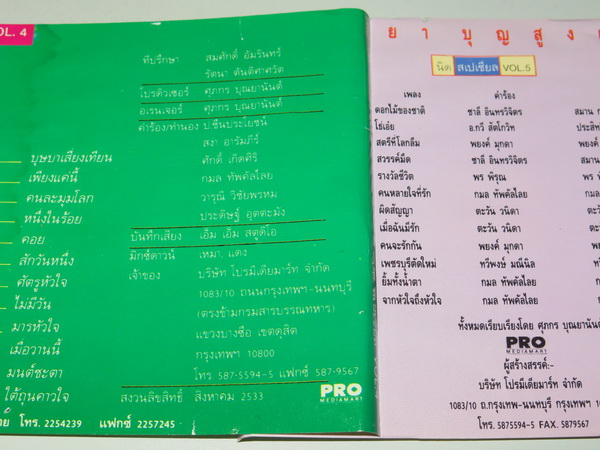 VOL. 4
ที่ปรึกษา สมศักดิ์ อัมรินทร์
รัตนา ตันติศาศวัต
โปรดิวเซอร์ ศุภกร บุณยานันต์
อ.เรนเจอร์ ศุภกร บุณยานันต์
คำร้อง/ทำนอง ป.ชื่นประโยชน์
สง่า อารัมภีร์
ศักดิ์ เกิดศิริ
กมล ทัพคัลไลย
วารุณี วิชัยพรหม
ประดิษฐ์ อุตตะมัง
บันทึกเสียง เอ็ม เอ็ม สตูดิโอ
มิกซ์ดาวน์ เหมา, แดง
เจ้าของ บริษัท โปรมีเดียมาร์ท จำกัด
1083/10 ถนนกรุงเทพฯ-นนทบุรี
(ตรงข้ามกรมสารบรรณทหาร)
แขวงบางซื่อ เขตดุสิต
กรุงเทพฯ 10800
โทร 587-5594-5 แฟกซ์ 587-9567
สงวนลิขสิทธิ์ สิงหาคม 2533
PRO
MEDIAMART
บุษบาเสี่ยงเทียน
เพียงแค่นี้
คนละมุมโลก
หนึ่งในร้อย
คอย
สักวันหนึ่ง
ศัตรูหัวใจ
ไม่มีวัน
มารหัวใจ
เมื่อวานนี้
มนต์ชะตา
ใต้ถุนคาวใจ
โทร. 2254239 แฟกซ์ 2257245
ยาบุญสูง
นิด สเปเชียล VOL.5
เพลง คำร้อง
ดอกไม้ของชาติ ชาลี อินทรวิจิตร สมาน
โธ่เอ๋ย อ.กวี สัตโกวิท ประสิท
สตรีที่โลกลืม พยงค์ มุกดา พยงค์
สวรรค์มืด ชาลี อินทรวิจิตร สมาน
รางวัลชีวิต พร พิรุณ
คนหลายใจที่รัก กมล ทัพคัลไลย กมล
ผิดสัญญา ตะวัน วนิดา ตะวัน
เมื่อฉันมีรัก ตะวัน วนิดา ตะวัน
คนจะรักกัน พยงค์ มุกดา พยงค์
เพชรบุรีตัดใหม่ ทวีพงษ์ มณีนิล
ยิ้มทั้งน้ำตา กมล ทัพคัลไลย กมล
จากหัวใจถึงหัวใจ กมล ทัพคัลไลย กมล
ทั้งหมดเรียบเรียงโดย ศุภกร บุณยานันต์
PRO
MEDIAMART
ผู้สร้างสรรค์:-
บริษัท โปรมีเดียมาร์ท จำกัด
1083/10 ถ.กรุงเทพ-นนทบุรี กรุงเทพฯ
โทร. 5875594-5 FAX. 5879567